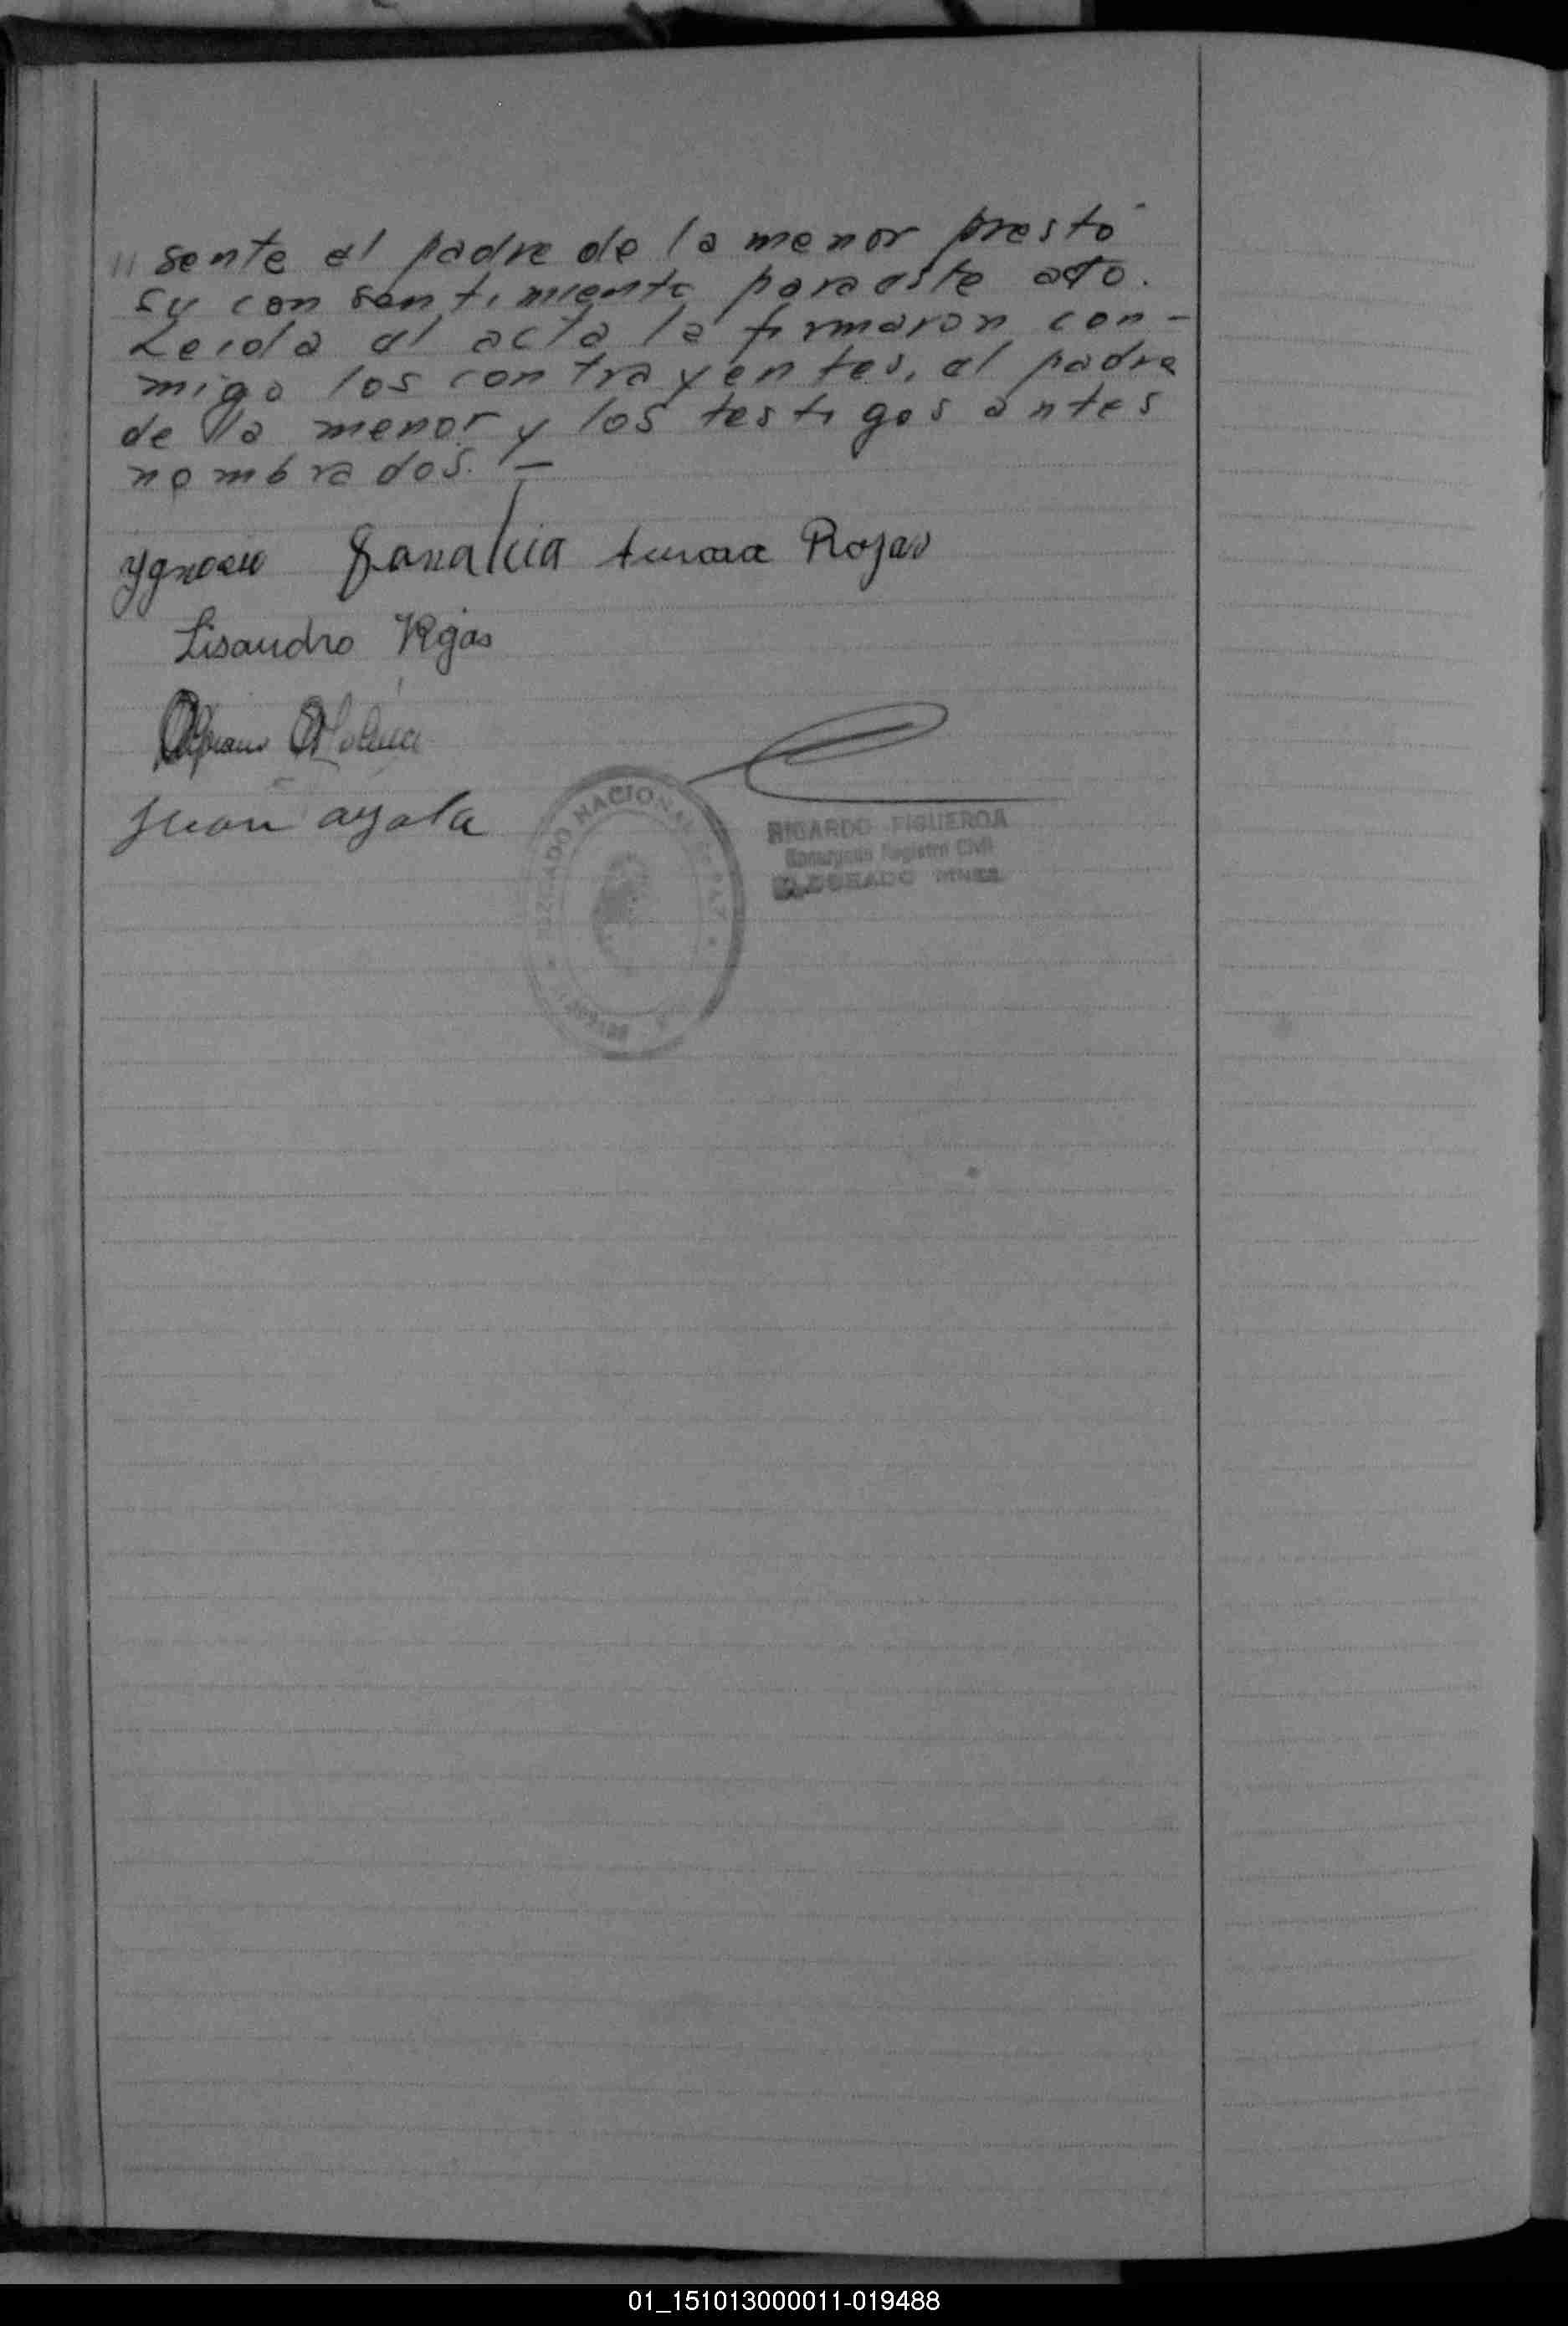 " sente el padre de la menor prestó
su consentimiento para este acto.
Leída el acta la firmaron con-
migo los contrayentes, el padre
de la menor y los testigos antes
nombrados. —
Rojas
Lisandro Rojas
Juan ayala
JUZGADO NACIONAL DE PAZ
RICARDO FIGUEROA
Encargado Registro Civil
ELDORADO MNES
01_151013000011-019488